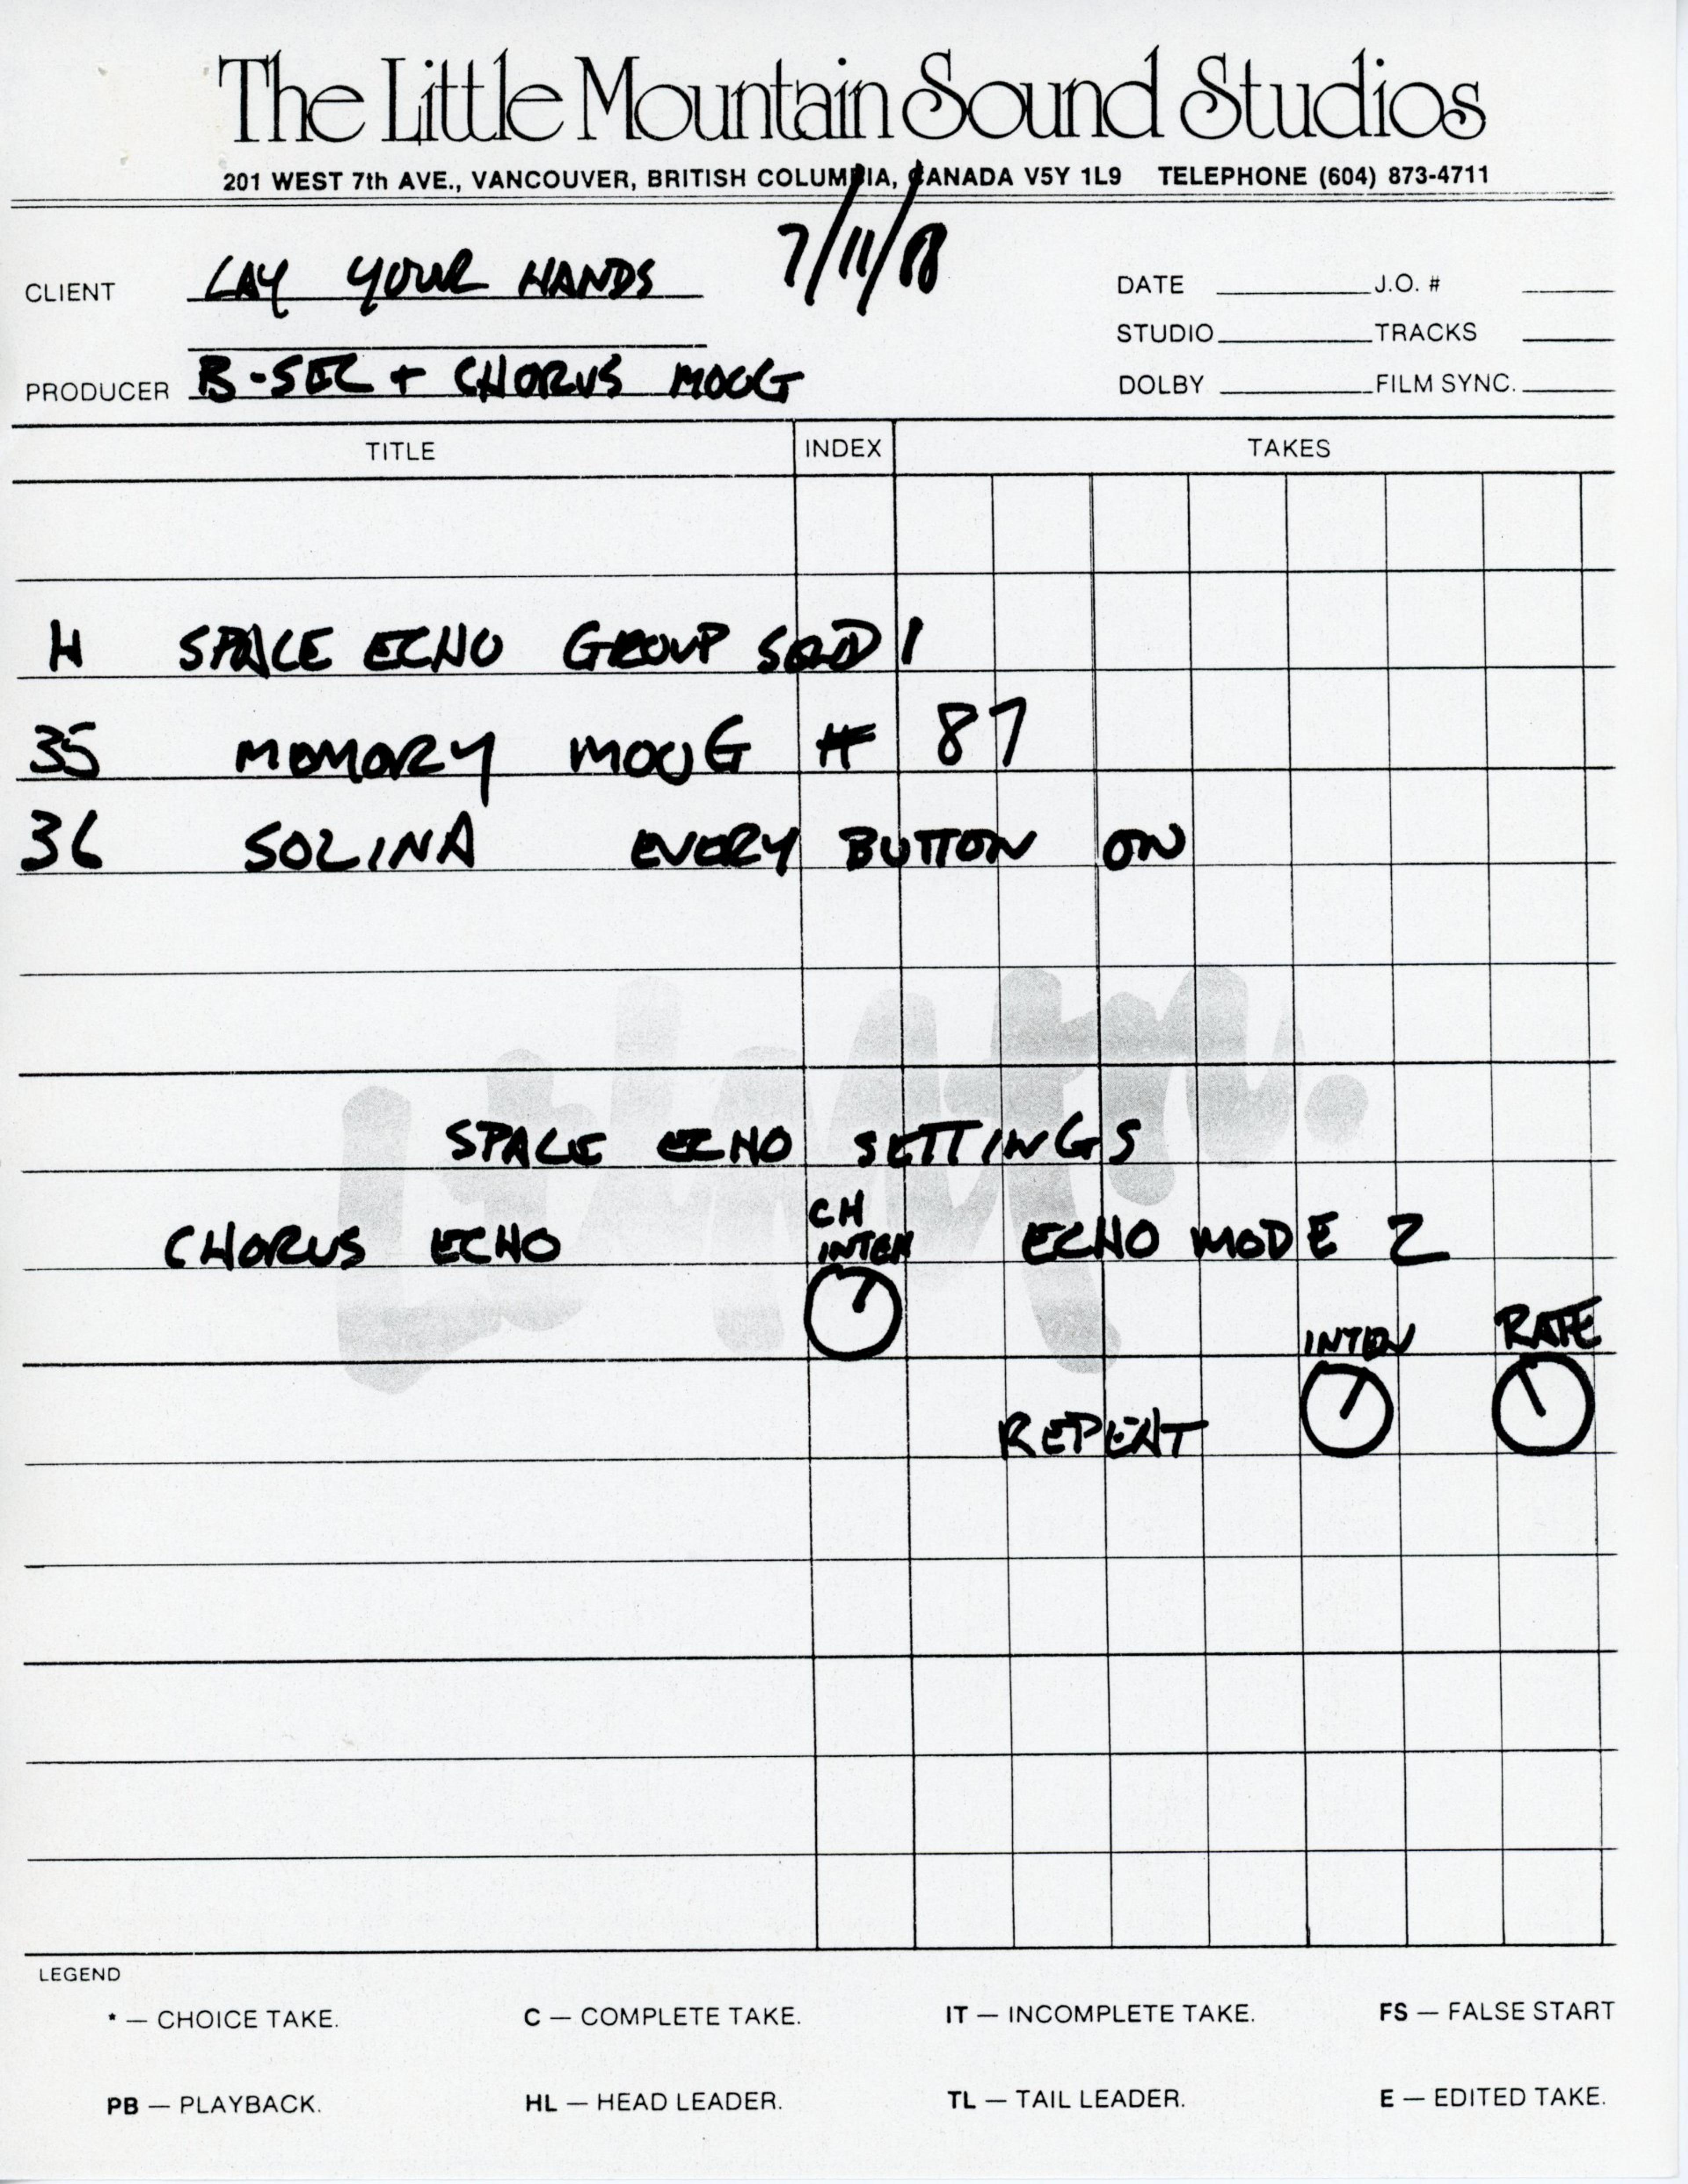 The Little Mountain Sound Studios
201 WEST 7th AVE., VANCOUVER, BRITISH COLUMBIA, CANADA V5Y 1L9 TELEPHONE (604) 873-4711
CLIENT LAY YOUR HANDS 7/11/88
DATE J.O. #
STUDIO TRACKS
PRODUCER B-SEC + CHORUS MOOG
DOLBY FILM SYNC.
TITLE INDEX TAKES
H SPACE ECHO GROUP SEND 1
35 MEMORY MOOG # 87
36 SOLINA EVERY BUTTON ON
SPACE ECHO SETTINGS
CHORUS ECHO CH INTEN ECHO MODE 2
INTEN RATE
REPEAT
LEGEND
* — CHOICE TAKE. C — COMPLETE TAKE. IT — INCOMPLETE TAKE. FS — FALSE START
PB — PLAYBACK. HL — HEAD LEADER. TL — TAIL LEADER. E — EDITED TAKE.